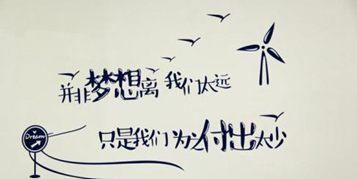 并非梦想离我们太远
只是我们为之付出太少
Dream